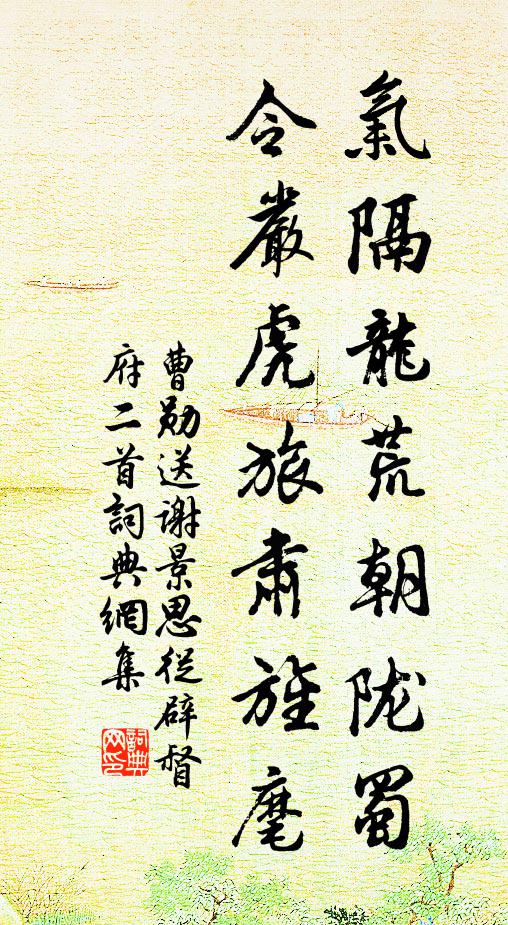 氣隔龍荒朝陇蜀
令嚴虎旅肅旌麾
曹勛送謝景思從辟督
府二首詞典網集
詞典网印